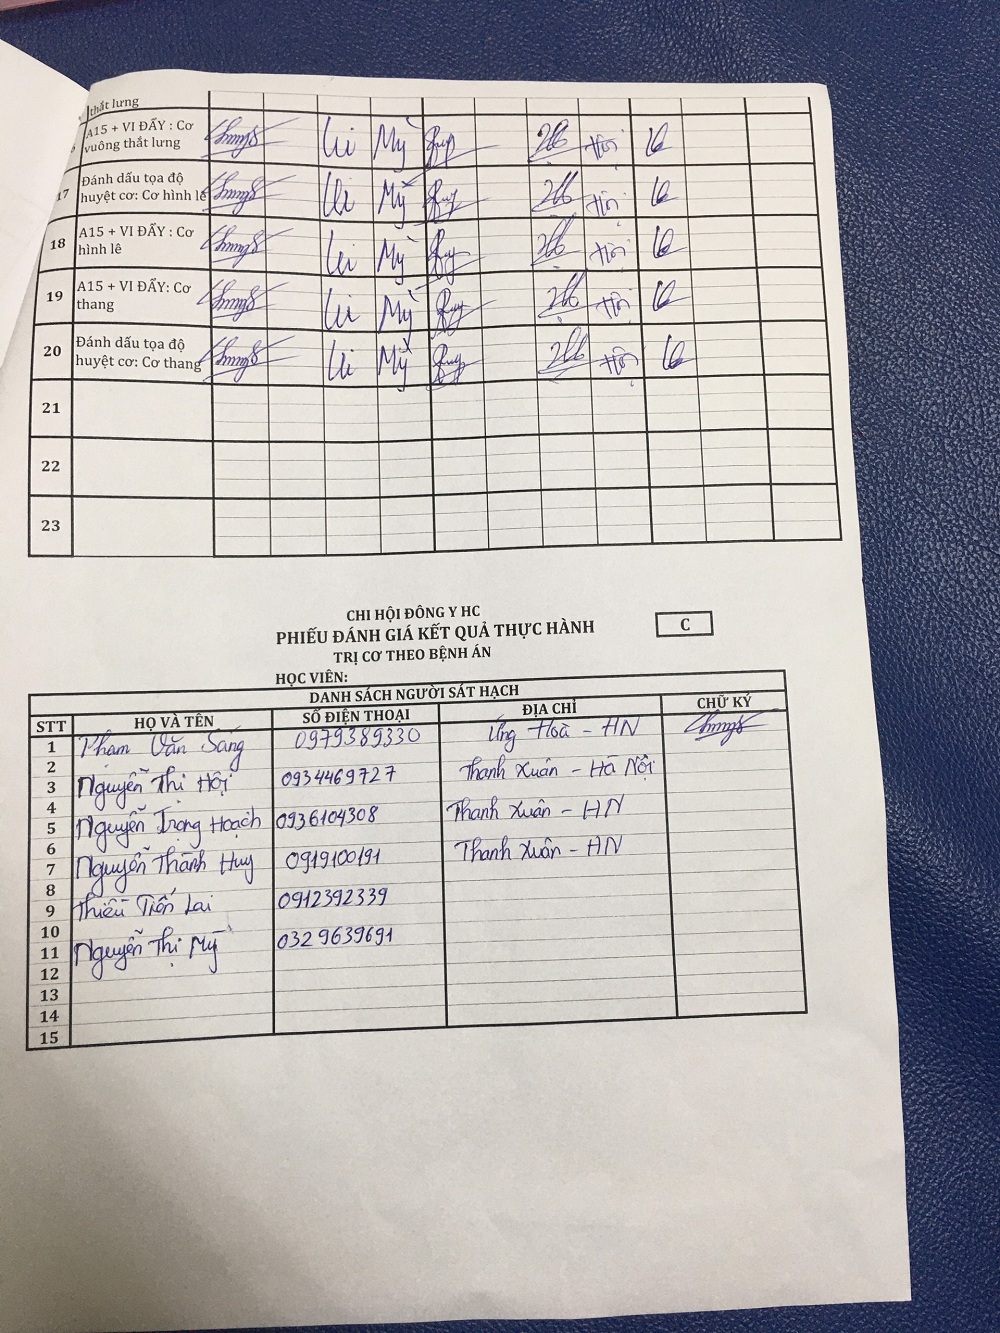 thắt lưng
A15 + VI ĐẨY : Cơ
vuông thắt lưng
Lai Mỹ Hội
17 Đánh dấu tọa độ
huyệt cơ: Cơ hình lê
Lai Mỹ Hội
18 A15 + VI ĐẨY : Cơ
hình lê
Lai Mỹ Hội
19 A15 + VI ĐẨY: Cơ
thang
Lai Mỹ Hội
20 Đánh dấu tọa độ
huyệt cơ: Cơ thang
Lai Mỹ Hội
21
22
23
CHI HỘI ĐÔNG Y HC
PHIẾU ĐÁNH GIÁ KẾT QUẢ THỰC HÀNH C
TRỊ CƠ THEO BỆNH ÁN
HỌC VIÊN:
DANH SÁCH NGƯỜI SÁT HẠCH
STT HỌ VÀ TÊN SỐ ĐIỆN THOẠI ĐỊA CHỈ CHỮ KÝ
1 Phạm Văn Sáng 0979389330 Ứng Hoà - HN
2
3 Nguyễn Thị Hội 0934469727 Thanh Xuân - Hà Nội
4
5 Nguyễn Trọng Hoạch 0936104308 Thanh Xuân - HN
6
7 Nguyễn Thành Huy 0919100191 Thanh Xuân - HN
8
9 Thiều Tiến Lai 0912392339
10
11 Nguyễn Thị Mỹ 0329639691
12
13
14
15